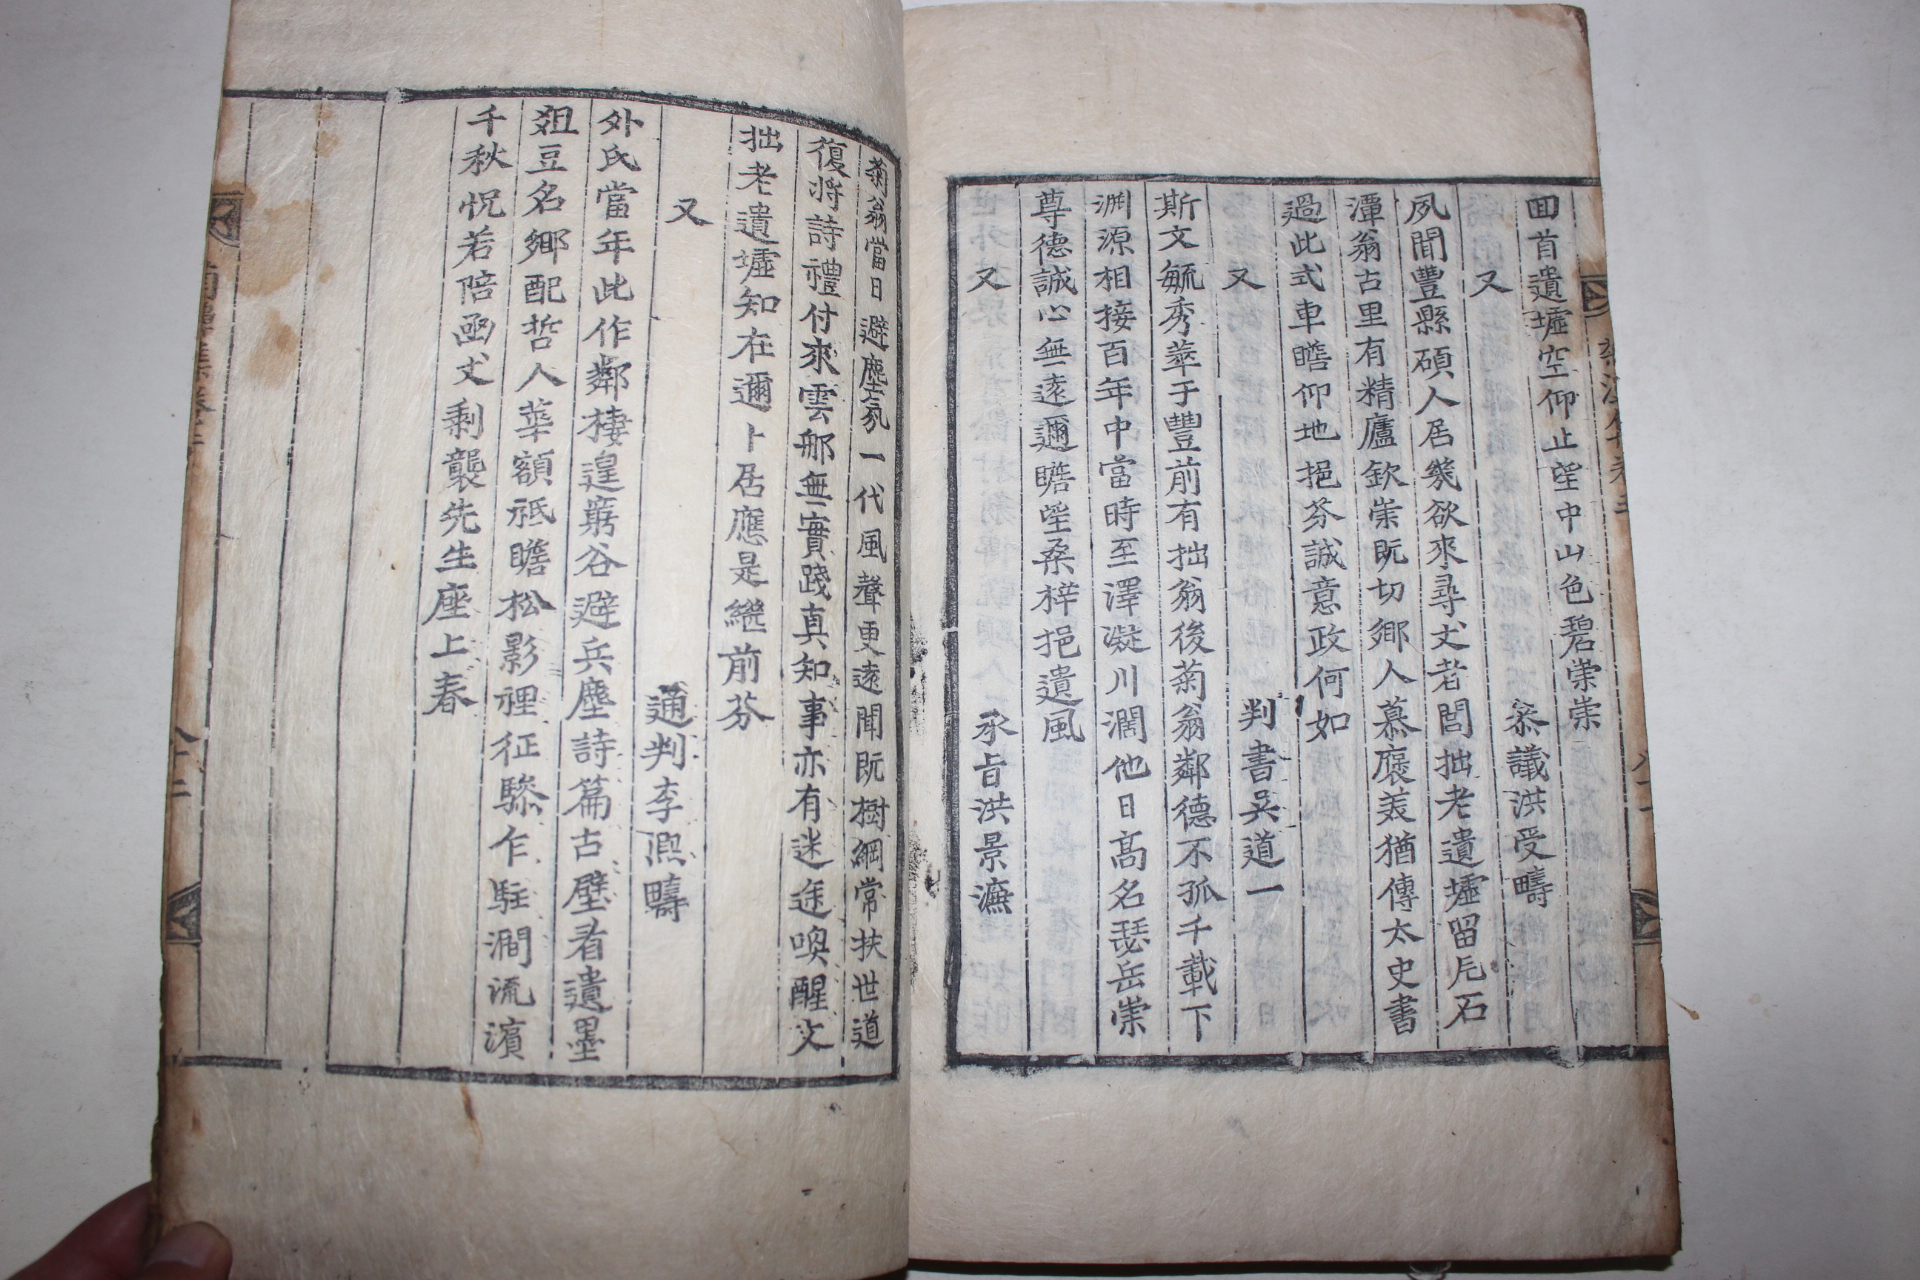 回首遺墟空仰止望中山色碧崇崇
又 叅議洪受疇
夙聞豐縣碩人居幾欲來尋丈老閭拙老遺墟留片石
潭翁古里有精廬欽崇旣切鄉人慕褒美猶傳太史書
過此式車瞻仰地挹芬誠意政何如
又 判書吳道一
斯文毓秀萃于豐前有拙翁後菊翁鄰德不孤千載下
淵源相接百年中當時至澤凝川濶他日高名瑟岳崇
尊德誠心無遠邇瞻望桑梓挹遺風
又 承旨洪景濂
菊翁當日避塵氛一代風聲更遠聞旣樹綱常扶世道
復將詩禮付來雲那無實踐真知事亦有迷途喚醒文
拙老遺墟知在邇卜居應是繼前芬
又 通判李熙疇
外氏當年此作鄰棲遑窮谷避兵塵詩篇古壁看遺墨
俎豆名鄉配哲人華額祗瞻松影裡征驂乍駐澗流濱
千秋怳若陪函丈剩襲先生座上春